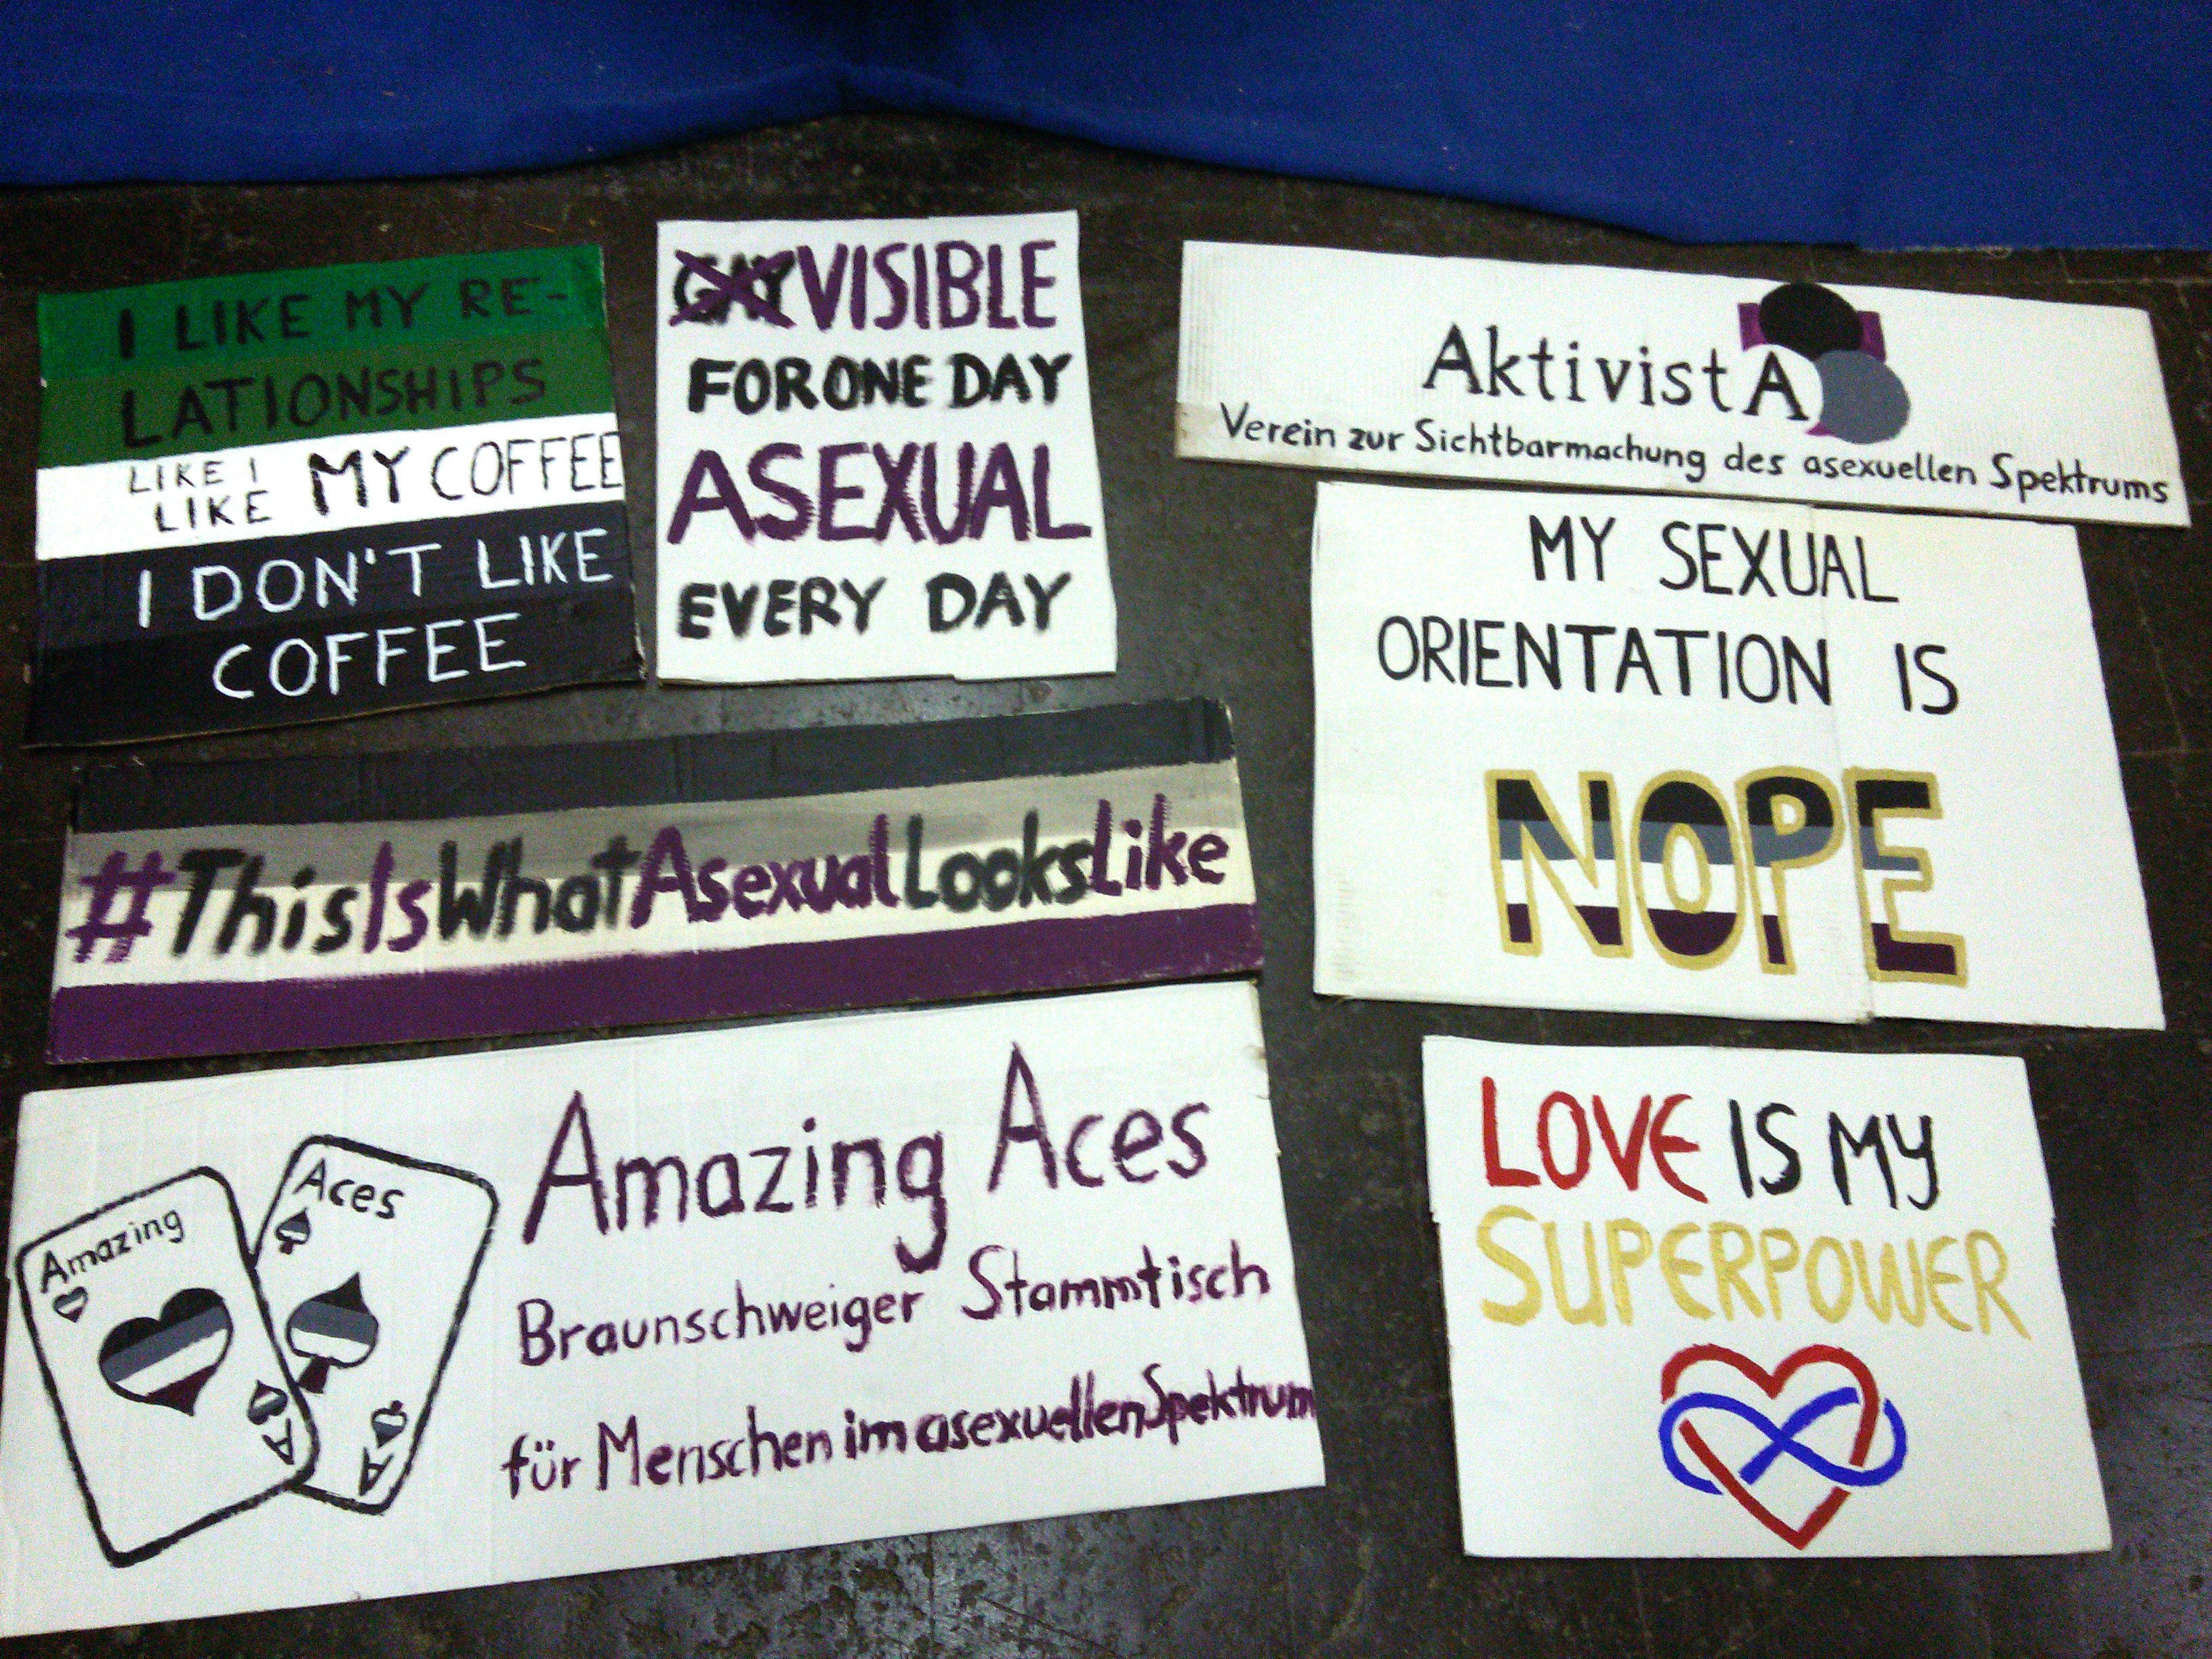 I LIKE MY RE-
LATIONSHIPS
LIKE I
LIKE MY COFFEE
I DON'T LIKE
COFFEE
GAY VISIBLE
FOR ONE DAY
ASEXUAL
EVERY DAY
AktivistA
Verein zur Sichtbarmachung des asexuellen Spektrums
MY SEXUAL
ORIENTATION IS
NOPE
#ThisIsWhatAsexualLooksLike
Amazing
A
Aces
A
Amazing Aces
Braunschweiger Stammtisch
für Menschen im asexuellen Spektrum
LOVE IS MY
SUPERPOWER